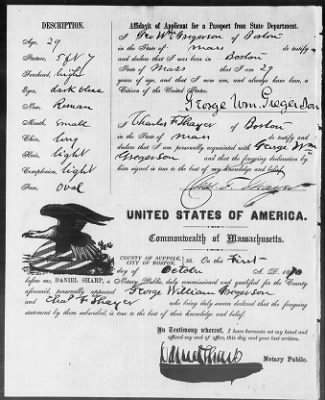 DESCRIPTION.
Age, 29
Stature, 5 ft 7
Forehead, high
Eyes, dark blue
Nose, Roman
Mouth, small
Chin, long
Hair, light
Complexion, light
Face, oval
Affidavit of Applicant for a Passport from State Department.
I Geo Wm Gregerson of Boston
in the State of Mass do testify
and declare that I was born in Boston
State of Mass that I am 29
years of age, and that I now am, and always have been, a
Citizen of the United States.
George Wm. Gregerson
I Charles F. Thayer of Boston
in the State of Mass do testify and
declare that I am personally acquainted with George Wm
Gregerson and that the foregoing declaration by
him signed is true to the best of my knowledge and belief.
Chas. F. Thayer
UNITED STATES OF AMERICA.
Commonwealth of Massachusetts.
COUNTY OF SUFFOLK, CITY OF BOSTON, SS. On this First
day of October A. D. 1870
before me, DANIEL SHARP, a Notary Public, duly commissioned and qualified for the County
aforesaid, personally appeared George William Gregerson
and Chas F Thayer who being duly sworn declared the foregoing
statement by them subscribed, is true to the best of their knowledge and belief.
In Testimony whereof, I have hereunto set my hand and
affixed my seal of office, this day and year last written.
Daniel Sharp
Notary Public.